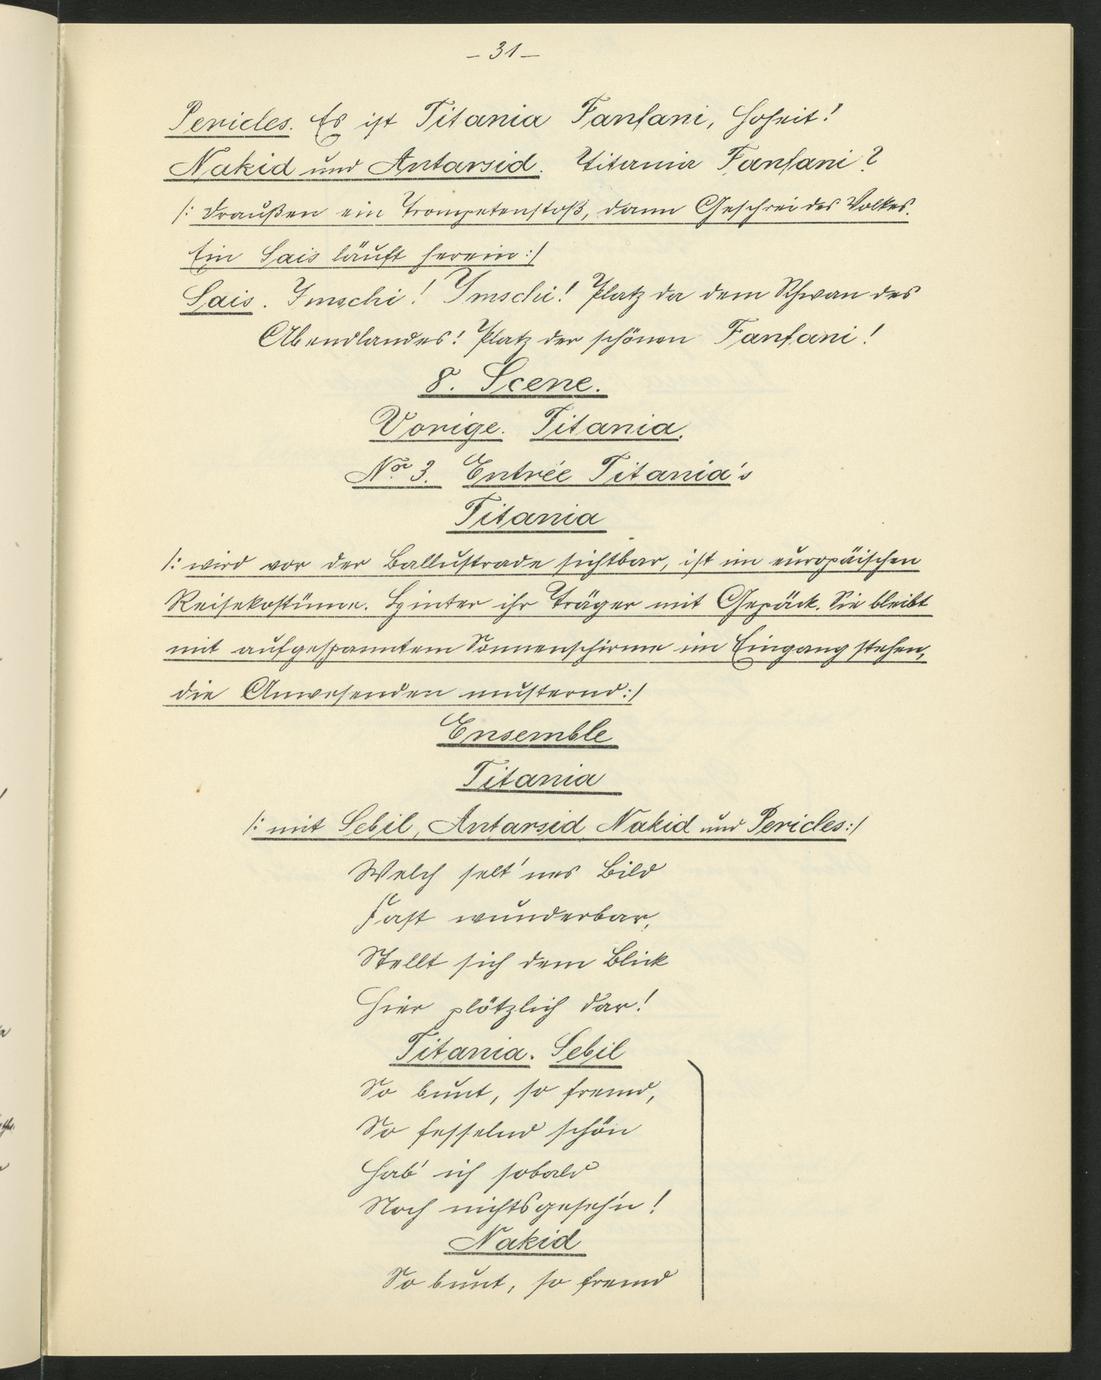 – 31 –
Pericles. Es ist Titania Fanfani, Hoheit!
Nakid und Antarsid. Titania Fanfani?
/: Draußen ein Trompetenstoß, dann Geschrei des Volkes.
Ein Sais läuft herein :/
Sais. Imschi! Imschi! Platz da dem Schwan des
Abendlandes! Platz der schönen Fanfani!
8. Scene.
Vorige. Titania.
Nro 3. Entrée Titania's
Titania
/: wird vor der Ballustrade sichtbar, ist im europäischen
Reisekostüme. Hinter ihr Träger mit Gepäck. Sie bleibt
mit aufgespanntem Sonnenschirme im Eingang stehen,
die Anwesenden musternd :/
Ensemble
Titania
/: mit Sebil, Antarsid Nakid und Pericles :/
Welch selt'nes Bild
Fast wunderbar,
Stellt sich dem Blick
Hier plötzlich dar!
Titania. Sebil
So bunt, so fremd,
So fesselnd schön
Hab' ich sobald
Noch nichts geseh'n!
Nakid
So bunt, so fremd